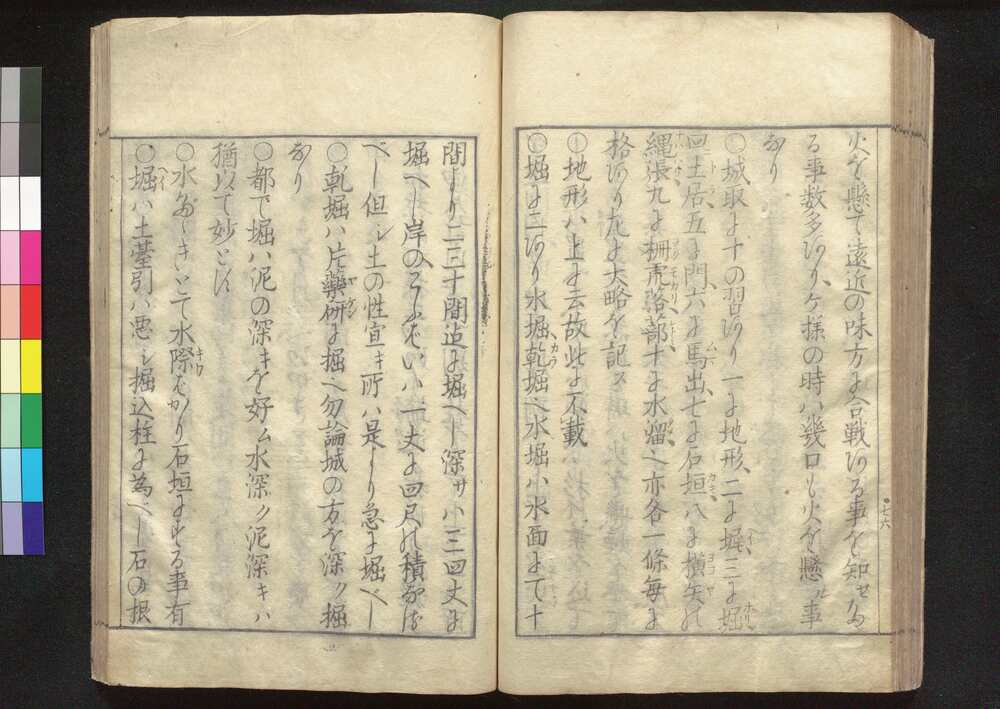 火を懸て遠近の味方に合戦ある事を知せなる
る事数多あり、ケ様の時ハ幾口も火を懸ル事
なり
○城取に十の習あり一に地形、二に塀、三に堀
四土居五に門六に馬出七に石垣八に横矢九
縄張九に柵虎落蔀十に水溜へ亦各一條毎に
格あり九に大略を記ス
○地形ハ上に云故此に不載
○堀に二あり水堀乾堀へ水堀ハ水面にて十
間より二三十間迄に堀へし深サハ三四丈に
堀へし岸の
へし但シ土の性宜キ所ハ是より急に堀へし
○乾堀ハ片藥研に堀へ勿論城の方を深ク堀
なり
○都て堀ハ泥の深キを好ム水深ク泥深キハ
猶以て妙とす
○水たゝきとて水際はかり石垣にする事有
○塀ハ土臺引ハ悪シ掘込柱に為へし石の根
七六